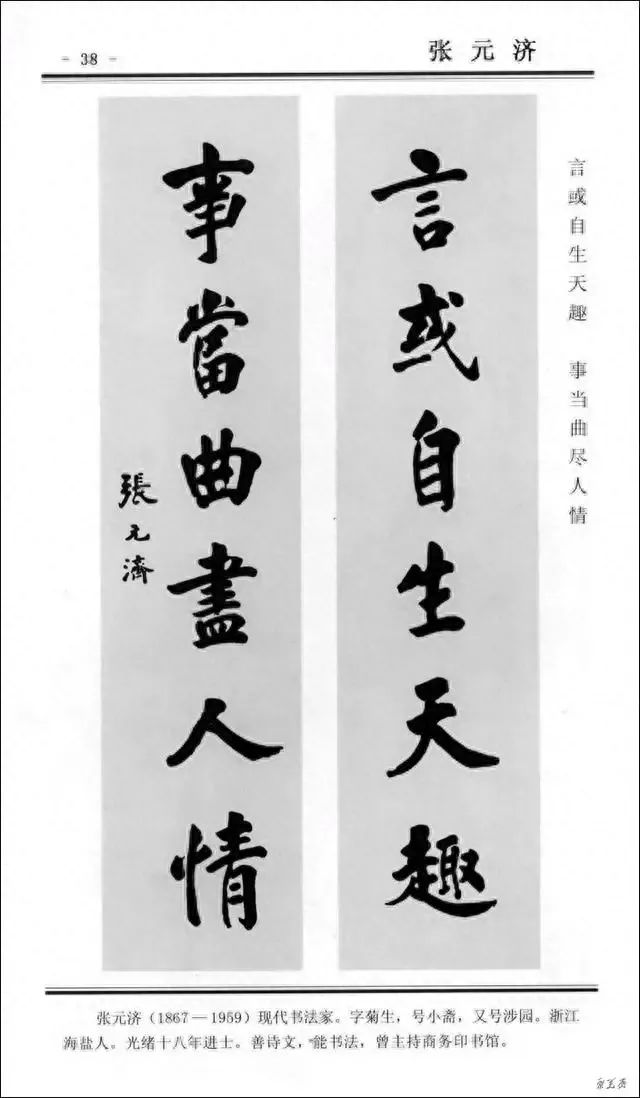 - 38 -
张元济
言或自生天趣 事当曲尽人情
言或自生天趣
事當曲盡人情
張元濟
张元济（1867—1959）现代书法家。字菊生，号小斋，又号涉园。浙江
海盐人。光绪十八年进士。善诗文，能书法，曾主持商务印书馆。